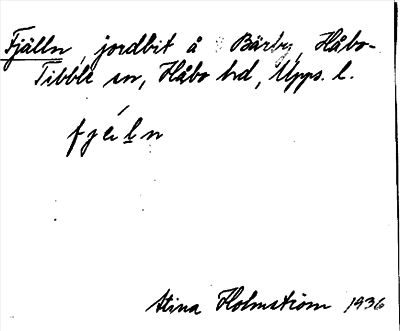 Fjälln, jordbit å Bärby, Håbo-
Tibble sn, Håbo hd, Upps. l.
fjéln
Stina Holmström 1936